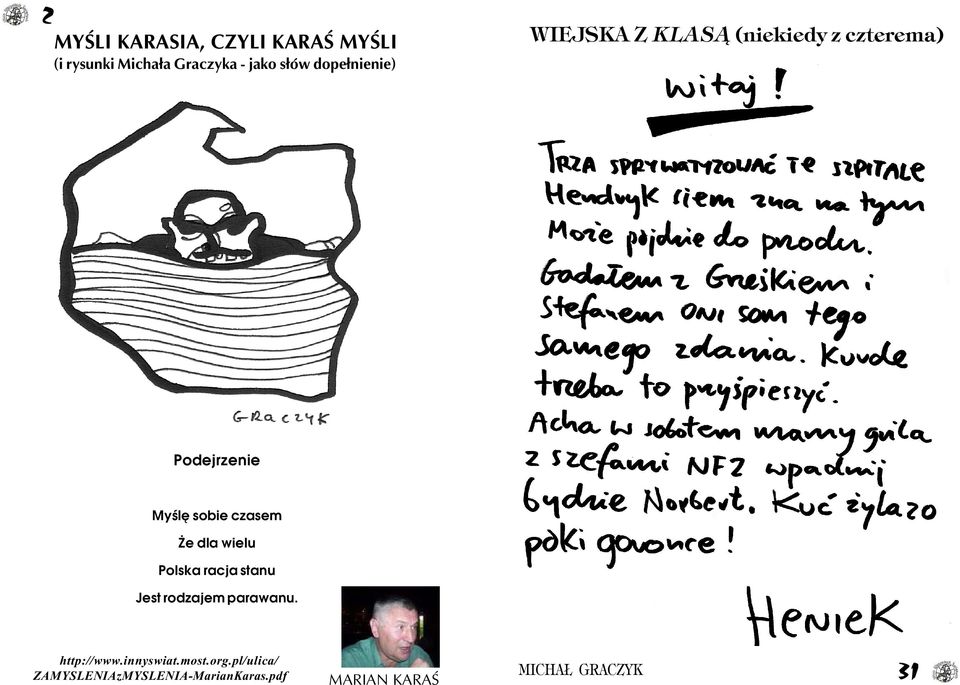 2
MYŚLI KARASIA, CZYLI KARAŚ MYŚLI
(i rysunki Michała Graczyka - jako słów dopełnienie)
GRaczyK
Podejrzenie
Myślę sobie czasem
Że dla wielu
Polska racja stanu
Jest rodzajem parawanu.
http://www.innyswiat.most.org.pl/ulica/
ZAMYSLENIAzMYSLENIA-MarianKaras.pdf
MARIAN KARAŚ
WIEJSKA Z KLASĄ (niekiedy z czterema)
witaj !
TRZA SPRYWATYZOWAĆ TE SZPITALE
Hendryk siem zna na tym
Może pójdzie do przodu.
Gadałem z Grześkiem i
Stefanem ONI som tego
Samego zdania. Kurde
trzeba to przyśpieszyć.
Acha w sobotem mamy grila
z szefami NFZ wpadnij
bydzie Norbert. Kuć żylazo
póki goronce !
HENIEK
MICHAŁ GRACZYK
31